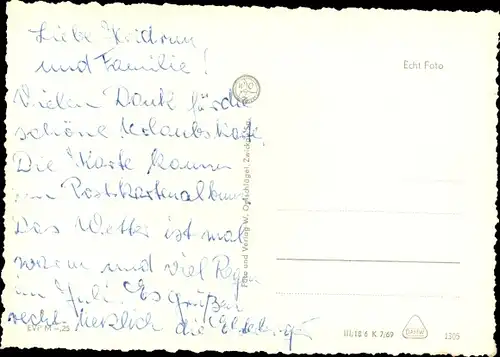 Liebe Heidrun
und Familie!
Vielen Dank für die
schöne Urlaubskarte.
Die Karte kommt
ins Postkartenalbum.
Das Wetter ist mal
warm und viel Regen
im Juli. Es grüßen
recht herzlich die
EVP M -,25
Foto und Verlag W. Zwickau
Echt Foto
III/18/6 K 7/69
1305